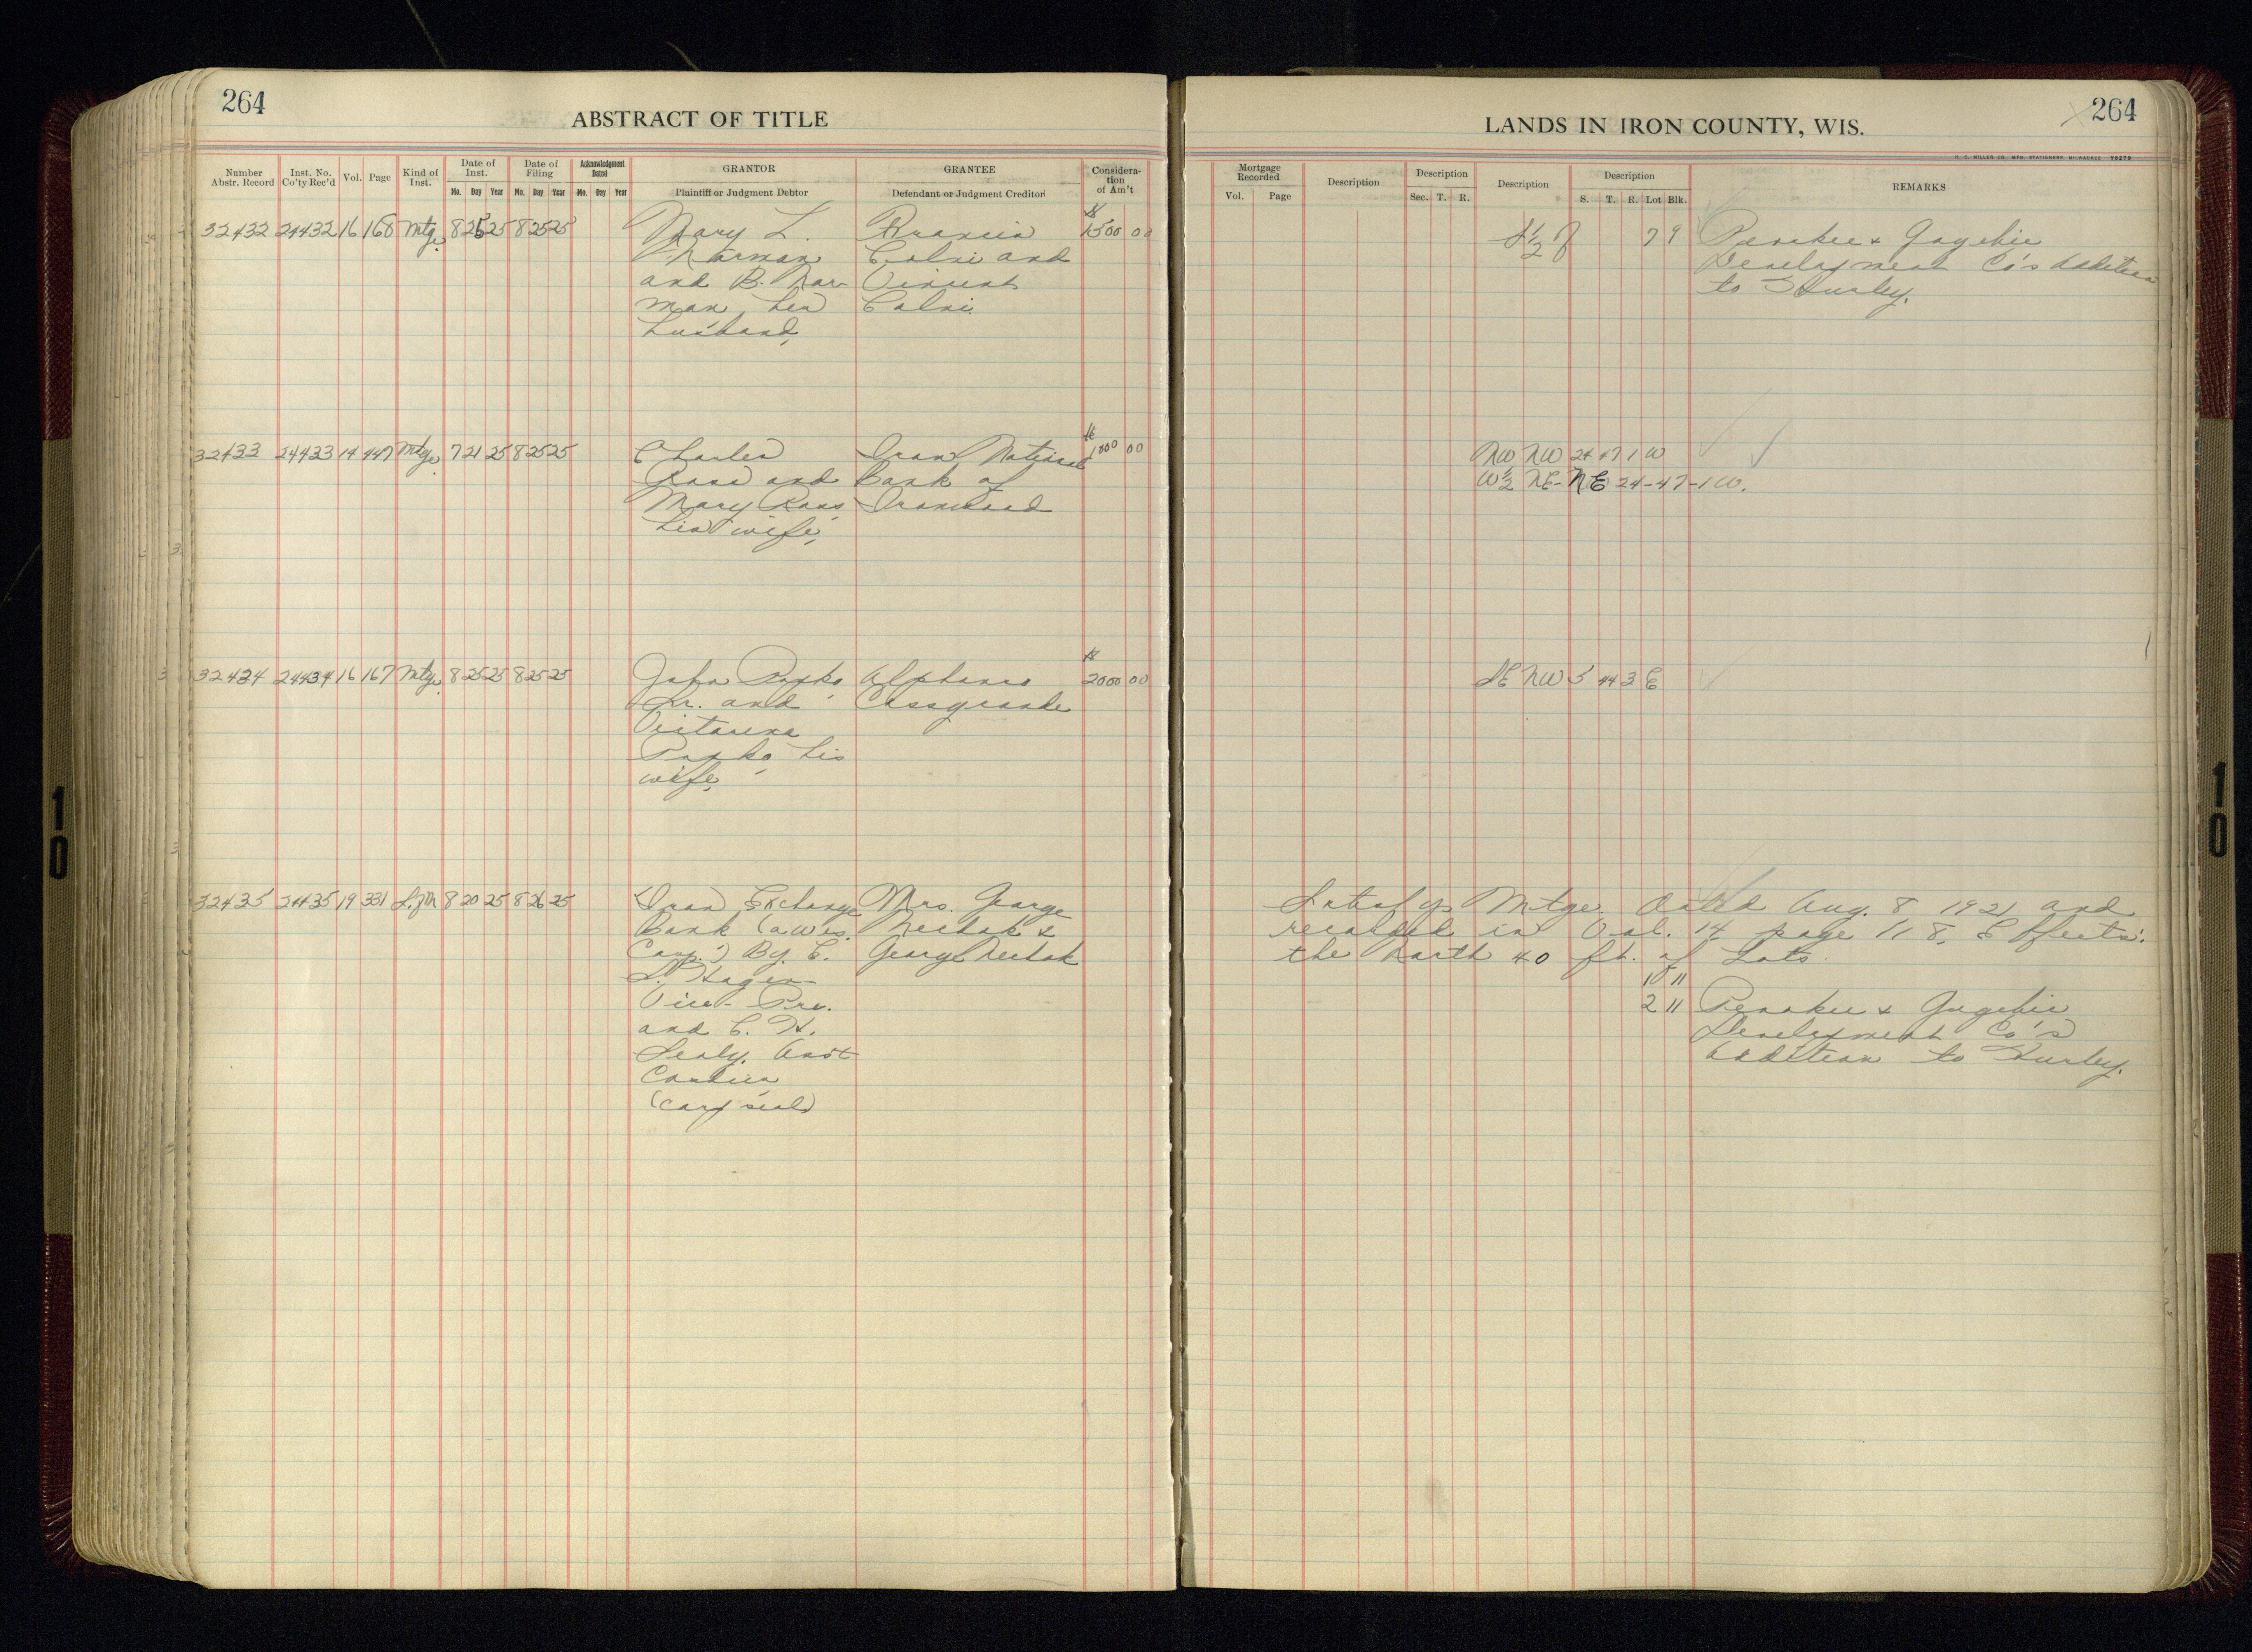 264
ABSTRACT OF TITLE
Number Abstr. Record
Inst. No. Co'ty Rec'd
Vol.
Page
Kind of Inst.
Date of Inst.
Mo. Day Year
Date of Filing
Mo. Day Year
Acknowledgment Dated
Mo. Day Year
GRANTOR
Plaintiff or Judgment Debtor
GRANTEE
Defendant or Judgment Creditor
Considera-
tion
of Am't
32432 24432 16 168 Mtge. 8 25 25 8 25 25 Mary L. Francis $1500 00
Narman Calvi and
and B. Nar- Vincent
man her Calvi
husband,
32433 24433 14 447 Mtge. 7 21 25 8 25 25 Charles Iron National $1000 00
Rass and Bank of
Mary Rass Ironwood
his wife,
32434 24434 16 167 Mtge. 8 25 25 8 25 25 John Popko Alphonso $2000 00
Sr. and Casagrande
Victoria
Popko his
wife,
32435 24435 19 331 S.of M 8 20 25 8 26 25 Iron Exchange Mrs. George
Bank (a Wis. Nechak &
Corp.) By. E. George Nechak
S. Hagen
Vice-Pre.
and E. H.
Sealy. Asst
Cashier
(Corp seal)
264
LANDS IN IRON COUNTY, WIS.
H. C. MILLER CO., MFG. STATIONERS, MILWAUKEE Y6278
Mortgage Recorded
Vol. Page
Description
Description
Sec. T. R.
Description
Description
S. T. R. Lot Blk.
REMARKS
S 1/2 of 7 9 Penokee & Gogebic
Development Co's Addition
to Hurley.
NW NW 24 47 1 W
W 1/2 NE-NE 24-47-1 W.
SE NW 5 44 3 E
Satisfys Mtge. Dated Aug. 8 1921 and
recorded in Vol. 14 page 118. Effects:
the North 40 ft. of Lots
1 11
2 11 Penokee & Gogebic
Development Co's
Addition to Hurley.
10
10